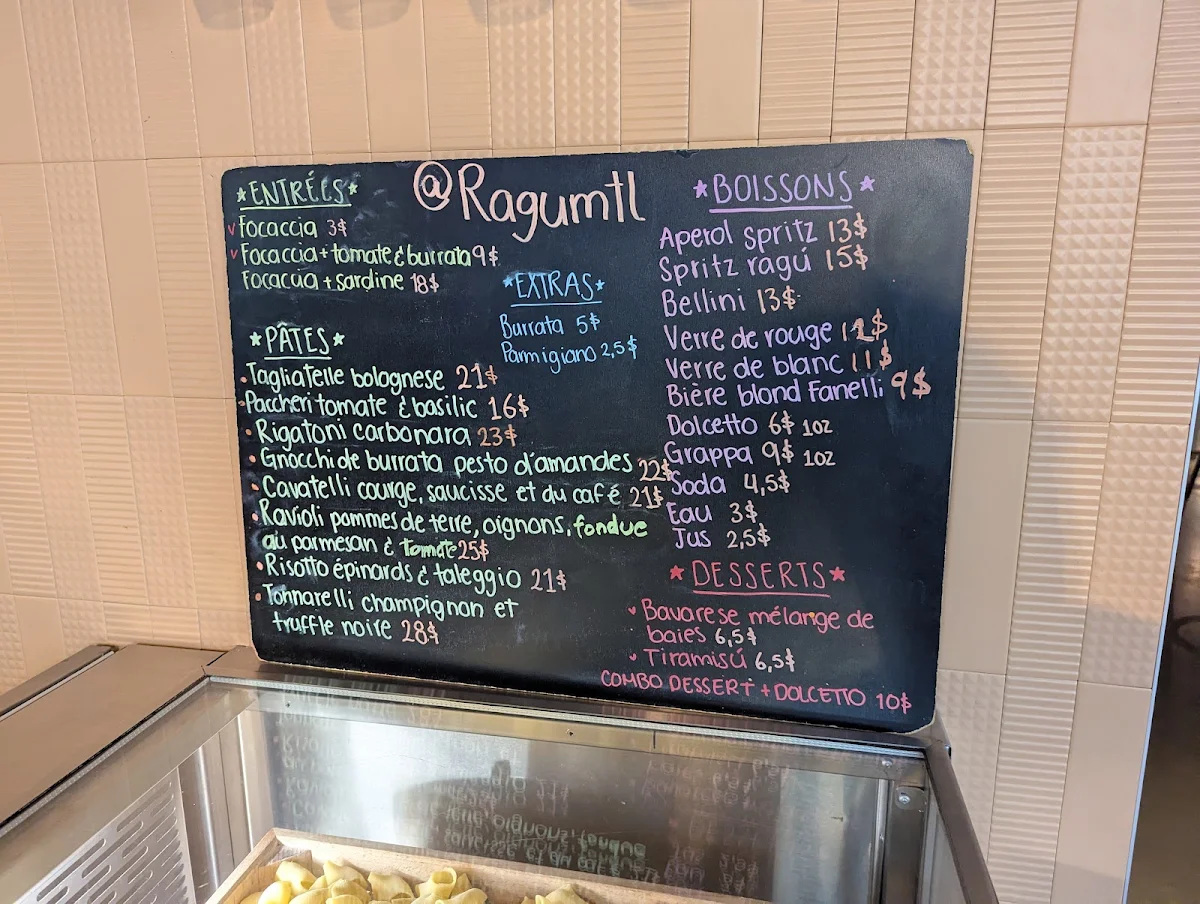 @Ragumtl
*ENTRÉES*
Focaccia 3$
Focaccia + tomate & burrata 9$
Focaccia + sardine 18$
*EXTRAS*
Burrata 5$
Parmigiano 2,5$
*PÂTES*
Tagliatelle bolognese 21$
Paccheri tomate & basilic 16$
Rigatoni carbonara 23$
Gnocchi de burrata pesto d'amandes 22$
Cavatelli courge, saucisse et du café 21$
Ravioli pommes de terre, oignons, fondue
au parmesan & tomate 25$
Risotto épinards & taleggio 21$
Tonnarelli champignon et
truffle noire 28$
*BOISSONS*
Aperol spritz 13$
Spritz ragú 15$
Bellini 13$
Verre de rouge $
Verre de blanc 11$
Bière blond Fanelli 9$
Dolcetto 6$ 1oz
Grappa 9$ 1oz
Soda 4,5$
Eau 3$
Jus 2,5$
*DESSERTS*
Bavarese mélange de
baies 6,5$
Tiramisú 6,5$
COMBO DESSERT + DOLCETTO 10$